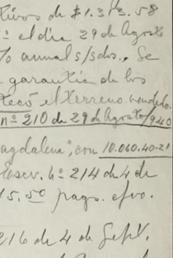 tivos de $1.313.58
el dia 29 de Agosto
% anual s/sdos. Se
garantia de los
tecó el terreno vendido
nº 210 de 29 de Agosto/940
agdalena; con 10.060.40-21
Escr. nº 214 de 4 de
15.50 pags. efvo.
216 de 4 de Sept.